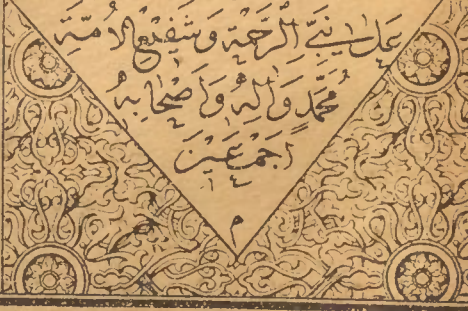 عَلٰى نَبِيِّ الرَّحْمَةِ وَشَفِيْعِ الْاُمَّةِ
مُحَمَّدٍ وَاٰلِهٖ وَاَصْحَابِهٖ
اَجْمَعِيْنَ
م